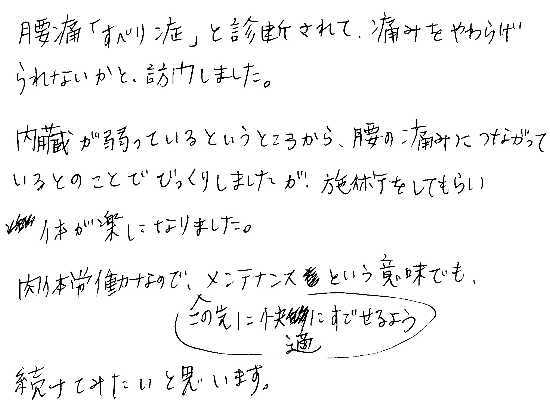 腰痛「すべり症」と診断されて、痛みをやわらげ
られないかと、訪門しました。
内臓が弱っているというところから、腰の痛みにつながって
いるとのことでびっくりしましたが、施術をしてもらい
体が楽になりました。
肉体労働なので、メンテナンスという意味でも、
この先に快適にすごせるよう
続けてみたいと思います。